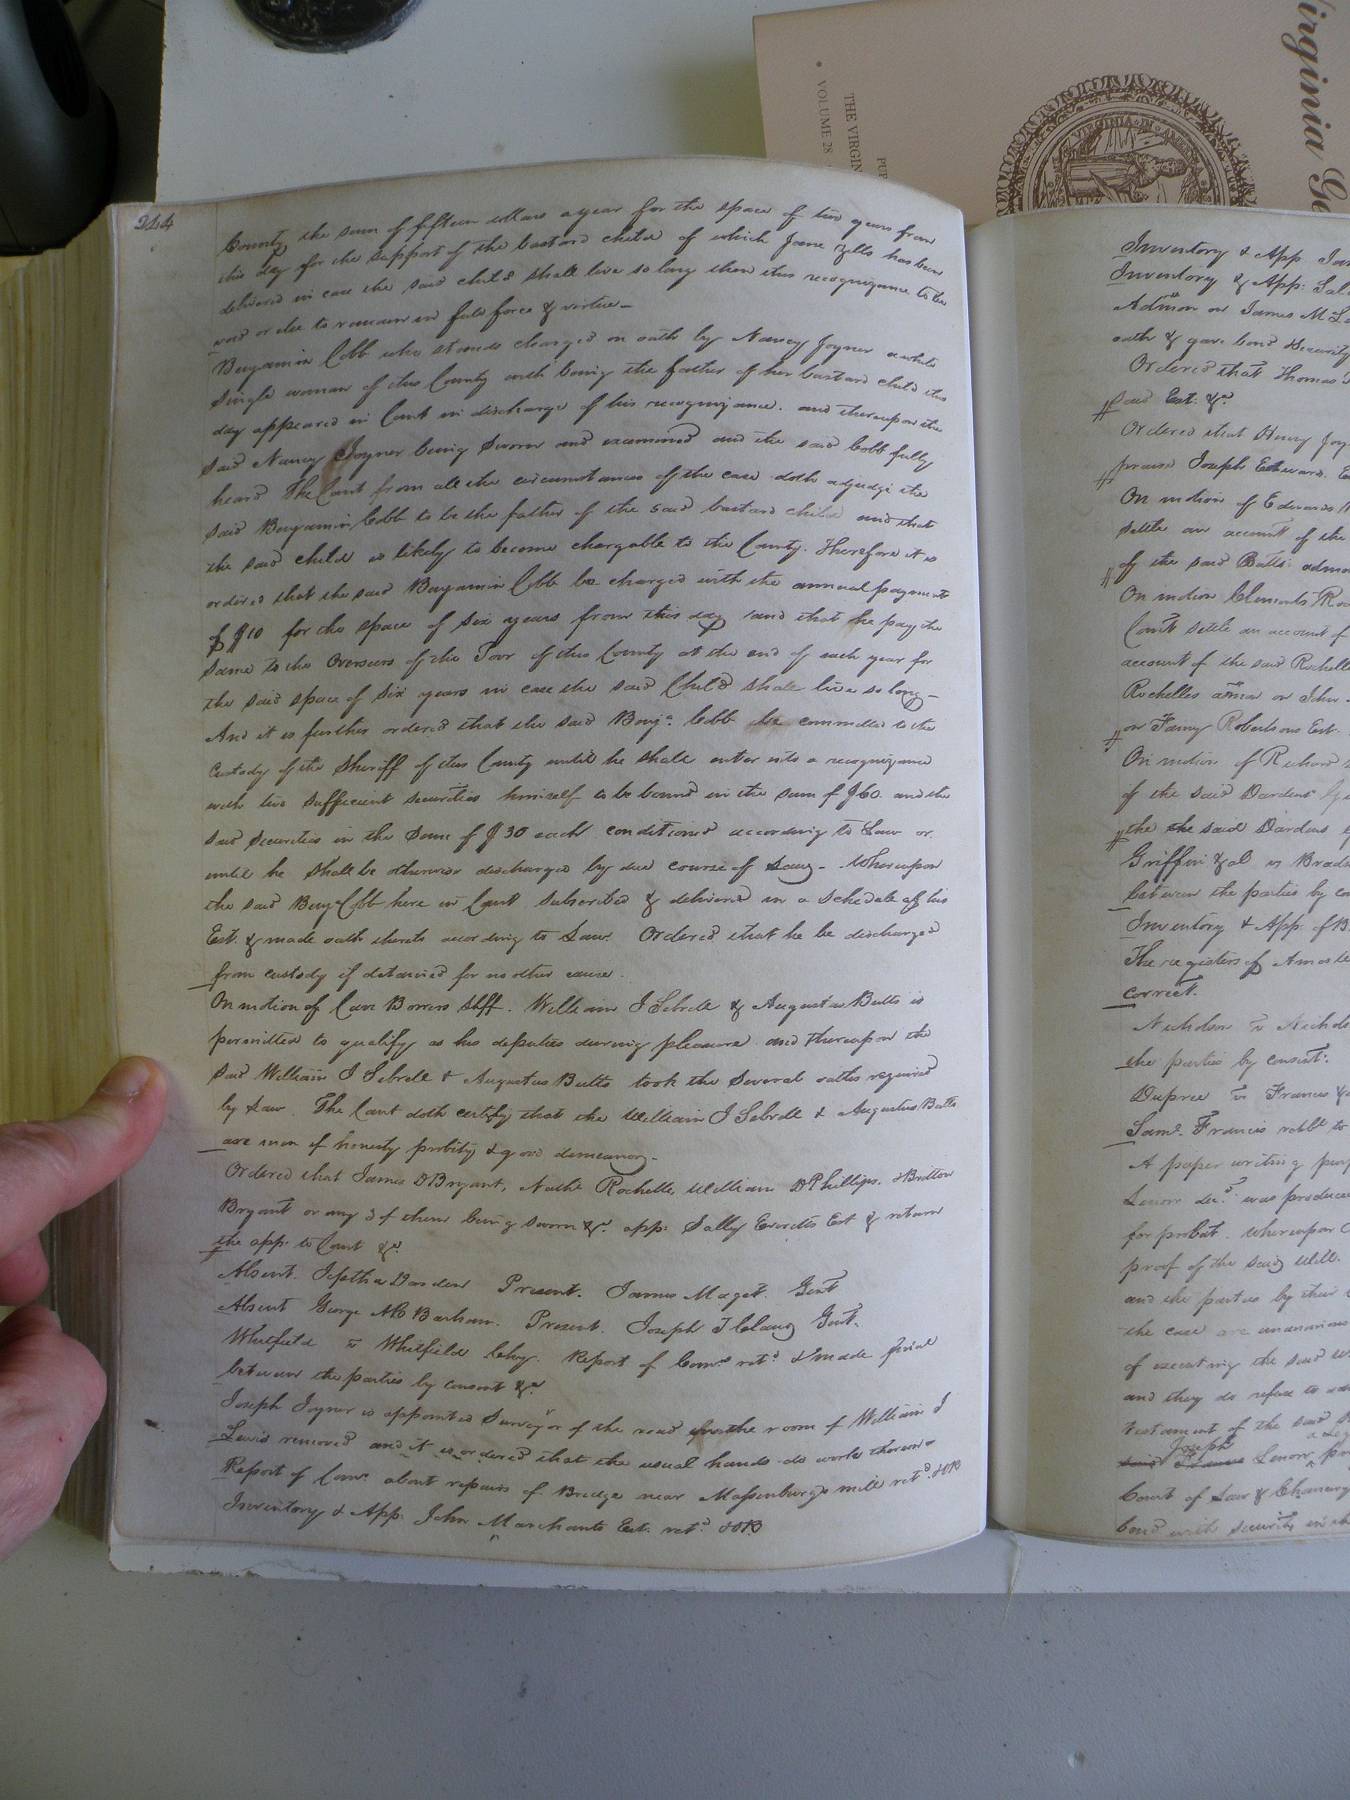 244
County the sum of fifteen dollars a year for the space of two years from
this day for the support of the bastard child of which Jane Zells has been
delivered in case the said child shall live so long then this recognizance to be
void or else to remain in full force & virtue –
Benjamin Cobb who stands charged on oath by Nancy Joyner a white
single woman of this County with being the father of her bastard child this
day appeared in Court in discharge of his recognizance. and thereupon the
said Nancy Joyner being sworn and examined and the said Cobb fully
heard The Court from all the circumstances of the case doth adjudge the
said Benjamin Cobb to be the father of the said bastard child and that
the said child is likely to become chargable to the County. Therefore it is
ordered that the said Benjamin Cobb be charged with the annual payment
of $10 for the space of six years from this day and that he pay the
same to the Overseers of the Poor of this County at the end of each year for
the said space of six years in case the said Child shall live so long –
And it is further ordered that the said Benja. Cobb be committed to the
custody of the Sheriff of this County until he shall enter into a recognizance
with two sufficient securities himself to be bound in the sum of $60. and the
said securities in the sum of $30 each conditioned according to Law or
until he shall be otherwise discharged by due course of Law – Whereupon
the said Benja Cobb here in Court subscribed & delivered in a schedule of his
Est. & made oath thereto according to Law. Ordered that he be discharged
from custody if detained for no other cause.
On motion of Carr Bowers Shff. William J Sebrell & Augustus Butts is
permitted to qualify as his deputies during pleasure and thereupon the
said William J Sebrell & Augustus Butts took the several oaths required
by Law. The Court doth certify that the William J Sebrell & Augustus Butts
are men of honesty probity & good demeanor –
Ordered that James D Bryant, Nathl Rochelle, William D Phillips, & Britton
Bryant or any 3 of them being sworn &c. app: Sally Everetts Est & return
the app. to Court &c
Absent. Jeptha Darden Present. James Maget. Gent
Absent George Barham. Present. Joseph T Claud Gent.
Whitfield vs Whitfield Report of Comrs retd & made final
between the parties by consent &c
Joseph Joyner is appointed Surveyor of the road in the room of William J
Lewis removed and it is ordered that the usual hands do work thereon
Report of Comr. about repairs of Bridge near Massenburgs mill retd. & OR
Inventory & App. John Marchants Est. retd & OR
Inventory & App
Inventory & App:
Admor on James M
oath & gave bond & security
Ordered that Thomas
said Est: &c
Ordered that Henry
praise Joseph Edwards
On motion of Edwards
settle an account of the
of the said Butts
On motion Clements
Court settle an account of
account of the said Rochelle
Rochelles admor on John
on Fanny Robertsons Est.
On motion of Richard
of the said Dardens
the the said Dardens
Griffin & al vs
between the parties by
Inventory & App: of
The registers of Amos
correct.
Nicholson vs
the parties by consent.
Dupree vs Francis
Saml. Francis
A paper writing
was produced
for probat. whereupon
proof of the said Will.
and the parties by their
the case are unanimous
of executing the said
and they do refuse to
testament of the said
Joseph
Court of Law & Chancery
bond with security
Virginia
VIRGINIA
THE VIRGIN
• VOLUME 28